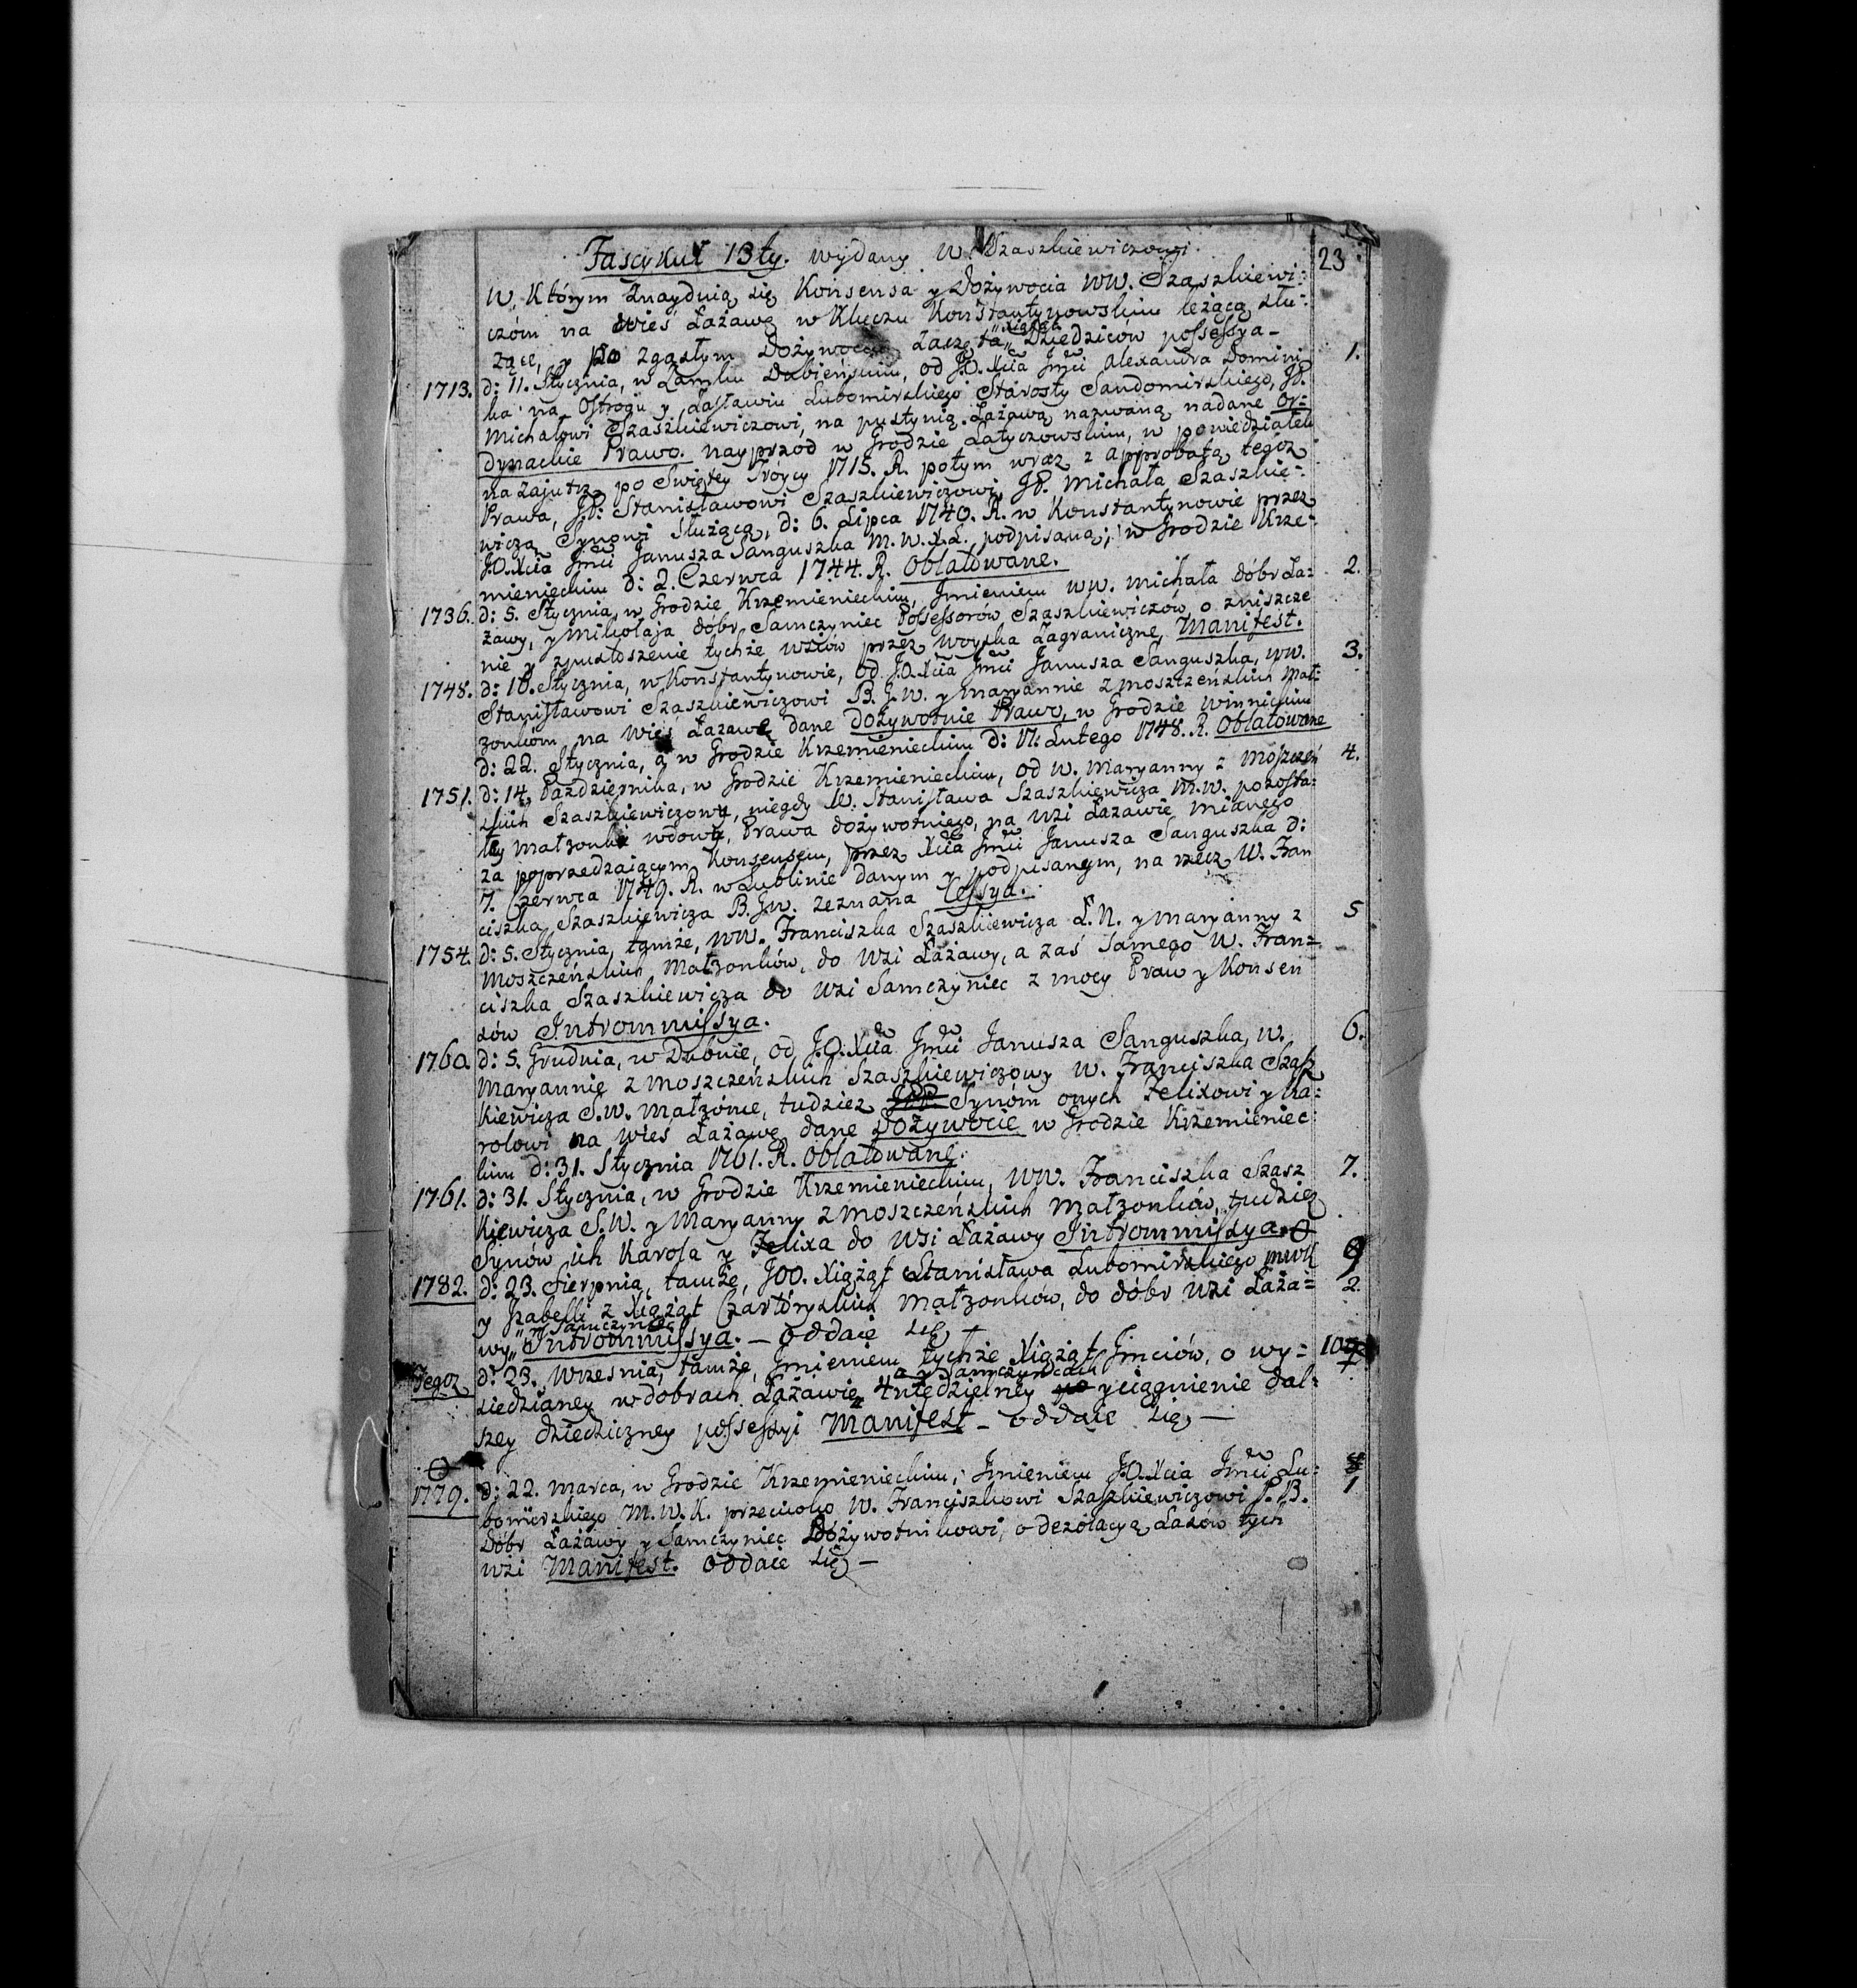 Fascykuł 13ty. wydany W. Szaszkiewiczowi.
23.
w, Którym Znayduią się Konsensa y Dożywocia WW. Szaszkiewi-
czóm na wieś Łażawę w Kluczu Konstantynowskim leżącą słu-
żące, y po zgasłym Dożywociu zaczęta „Xiążąt„ Dziedziców possessya-
1713. d: 11. Stycznia, w Zamku Dubieńskim, od J.O. Xcia Jmci Alexandra Domini 1.
ka na Ostrogu y Zasławiu Lubomirskiego Starosty Sandomirskiego, JP.
Michałowi Szaszkiewiczowi, na pustynią Łażawą nazwaną nadane Or=
dynackie Prawo. nayprzod w Grodzie Latyczowskim, w poniedziałek
nazajutrz po Swiętey Tróycy 1715. R. potym wraz z approbatą tegoz
Prawa, JP. Stanisławowi Szaszkiewiczowi, JP. Michała Szaszkie-
wicza Synowi służącą, d: 6. Lipca 1740. R. w Konstantynowie przez
J.O. Xcia Jmci Janusza Sanguszka M.N.X.L. podpisaną; w Grodzie Krze-
mienieckim d: 2. Czerwca 1744. R. Oblatowane.
1736. d: 5. Stycznia, w Grodzie Krzemienieckim, Jmieniem WW. Michała dóbr Ła= 2.
żawy, y Mikołaja dóbr Samczyniec Possessorów Szaszkiewiczów, o zniszcze
nie y spustoszenie tychże wsiów przez woyska Zagraniczne, Manifest.
1748. d: 10. Stycznia, w Konstantynowie, od J.O. Xcia Jmci Janusza Sanguszka, WW. 3.
Stanisławowi Szaszkiewiczowi B.G.W. y Maryannie z Moszczeńskich Mał-
żonkóm na wieś Łażawę dane Dożywotnie Prawo, w Grodzie Winnickim
d: 22. Stycznia, a w Grodzie Krzemienieckim D: 17: Lutego 1748. R. Oblatowane
1751. d: 14. Października, w Grodzie Krzemienieckim, od W. Maryanny z Moszczeń 4.
skich Szaszkiewiczowy, niegdy W. Stanisława Szaszkiewicza M.W. pozosta=
łey małżonki wdowy, Prawa dożywotniego, na wsi Łażawie mianego
za poprzedzaiącym Konsensem, przez Xcia Jmci Janusza Sanguszka D:
7. Czerwca 1749. R. w Lublinie danym y podpisanym, na rzecz W. Fran
ciszka Szaszkiewicza B.G.W. zeznana Cessya.
1754. d: 5. Stycznia, tamże, WW. Franciszka Szaszkiewicza Ł.N. y Maryanny z 5
Moszczeńskich Małżonków, do wsi Łażawy, a zaś samego W. Fran=
ciszka Szaszkiewicza do wsi Samczyniec z mocy Praw y Konsen
sów Intromissya.
1760. d: 5. Grudnia, w Dubnie, od J.O. Xcia Jmci Janusza Sanguszka, W. 6.
Maryannie z Moszczeńskich Szaszkiewiczowy W. Franciszka Szasz
kiewicza S.W. małżonie, tudziez JPP. Synóm onych Felixowi y Ka=
rolowi na wieś Łażawę dane Dożywocie w Grodzie Krzemieniec
kim d: 31. Stycznia 1761. R. Oblatowane.
1761. d: 31. Stycznia, w Grodzie Krzemienieckim, WW. Franciszka Szasz 7.
kiewicza S.W. y Maryanny z Moszczeńskich Małżonków, tudziez
Synów ich Karola y Felixa do wsi Łażawy Intromissya.
1782. d: 23. Sierpnia, tamże, JOO. Xiążąt Stanisława Lubomirskiego MWK 9
y Jzabelli z Xiążąt Czartoryskich Małżonków, do dóbr wsi Łaża= 2.
wy „Samczyniec„ Intromissya. - oddaie się -
Tegoz d: 23. Wrzesnia, tamże, Jmieniem tychże Xiążąt Jmciów, o wy= 10
siedzianey w dobrach Łażawie „a y Samczyńcach„ 4niedzielney y ciągnienie dal=
szey dziedziczney possessyi Manifest - oddaie się -
1779. d: 22. Marca, w Grodzie Krzemienieckim, Jmieniem J.O. Xcia Jmci Lu= 8
bomirskiego M.W.K. przeciwko W. Franciszkowi Szaszkiewiczowi P.B. 1
Dóbr Łażawy y Samczyniec Dożywotnikowi, o dezolacyą Lasow tych
wsi Manifest. oddaie się -